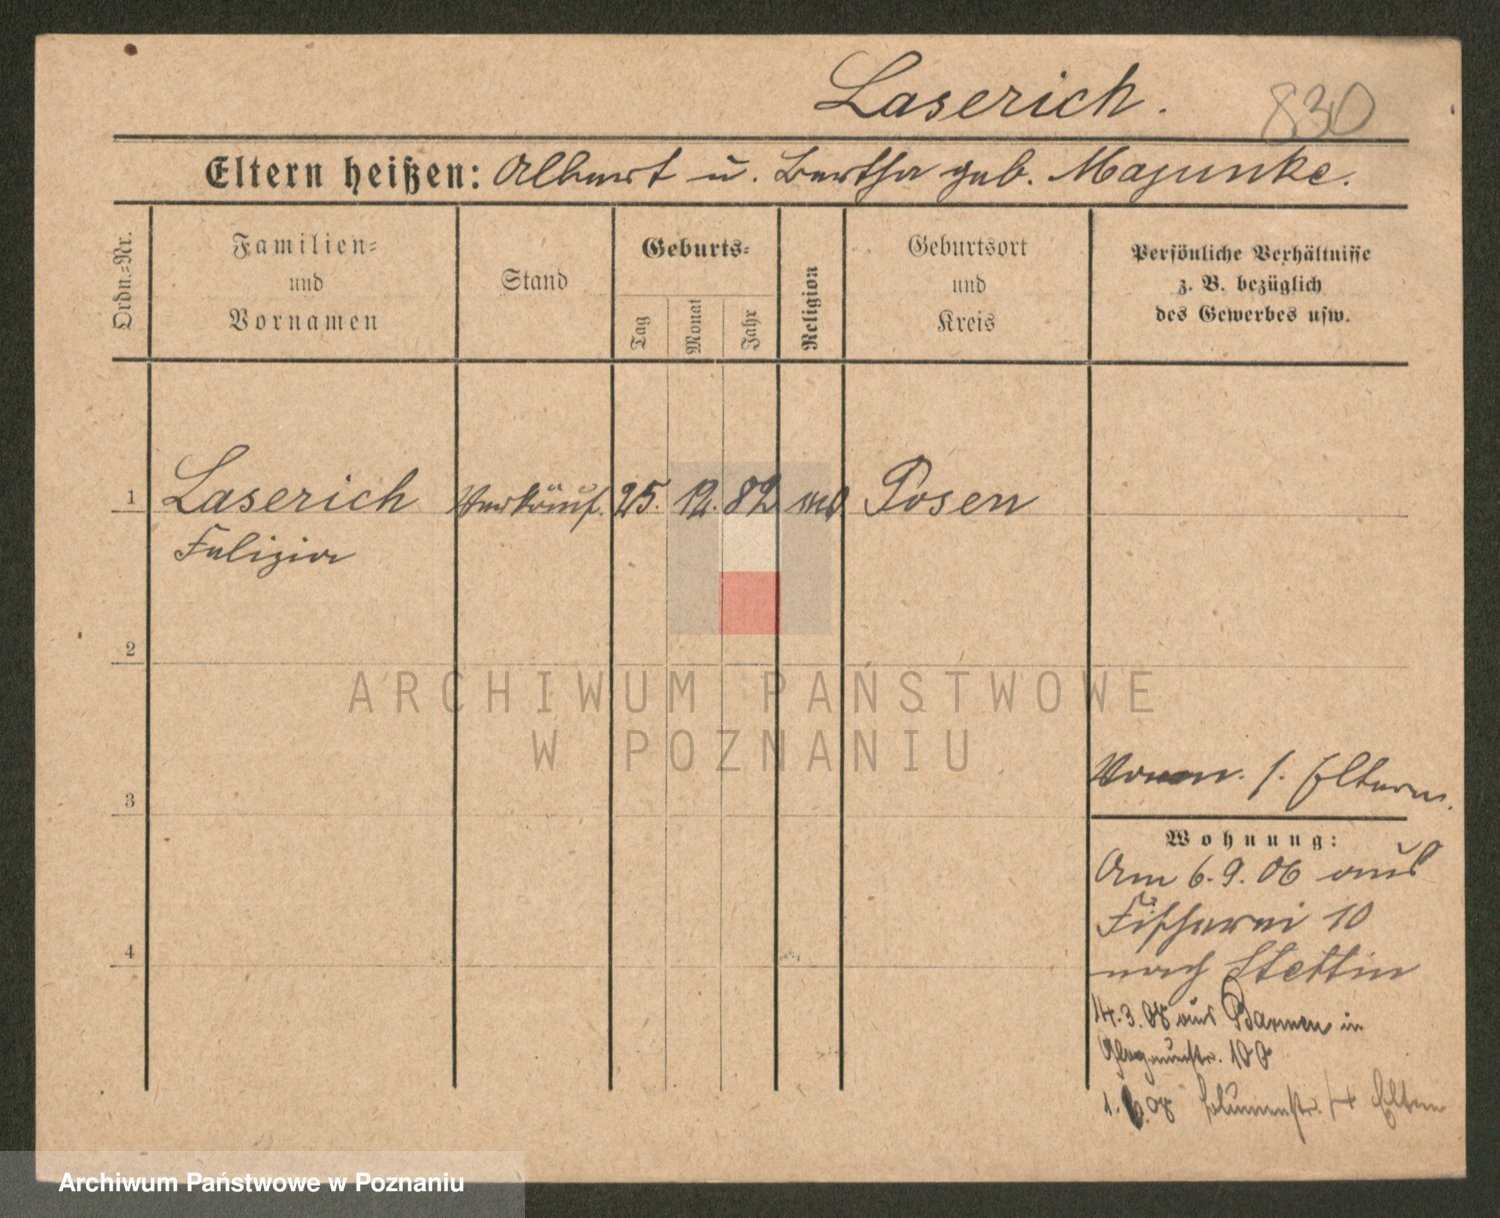 Laserich.
830
Eltern heißen: Albert u. Bertha geb. Majunke.
Ordn.=Nr.
Familien=
und
Vornamen
Stand
Geburts=
Tag
Monat
Jahr
Religion
Geburtsort
und
Kreis
Persönliche Verhältnisse
z. B. bezüglich
des Gewerbes usw.
1 Laserich Verkäuf. 25. 12. 82 Posen
Felizia
2
3
4
ARCHIWUM PAŃSTWOWE
W POZNANIU
s. Eltern.
Wohnung:
Am 6.9.06 aus
Fischerei 10
nach Stettin
14.3.08 aus Barmen in
Glogauerstr. 100
1.6.08 Blumenstr. 14 Eltern
Archiwum Państwowe w Poznaniu